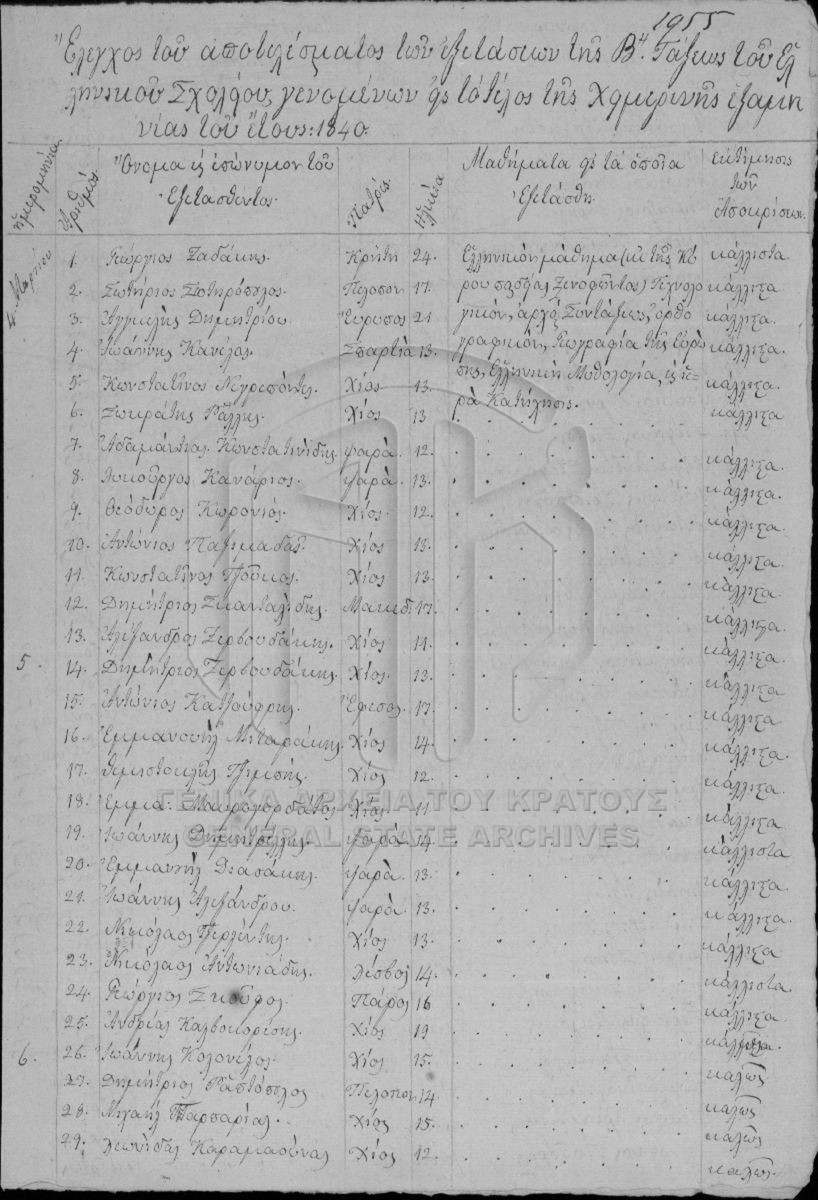 1955
Ἔλεγχος τοῦ ἀποτελέσματος τῶν ἐξετάσεων τῆς Βας Τάξεως τοῦ Ἑλ
ληνικοῦ Σχολείου, γενομένων εἰς τὸ τέλος τῆς Χειμερινῆς ἑξαμη
νίας τοῦ ἔτους: 1840.
ἡμερομηνία
Ἀριθμός.
Ὄνομα καὶ ἐπώνυμον τοῦ Ἐξετασθέντος.
Πατρίς.
Ἡλικία
Μαθήματα εἰς τὰ ὁποῖα Ἐξετάσθη.
Ἐκτίμησις τῶν Ἀποκρίσεων.
4 Μαρτίου
1. Γεώργιος Ζαδάκης. Κρήτη 24. Ἑλληνικὸν μάθημα (ἐκ τῆς Κύ κάλλιστα
2. Σωτήριος Σωτηρόπουλος Πελοπον 17. ρου παιδείας Ξενοφῶντος) Τεχνολο κάλλιστα
3. Ἀγγελῆς Δημητρίου. Εὔρυπος 21 γικόν, ἀρχὰς Συντάξεως, ὀρθο κάλλιστα.
4. Ἰωάννης Κανέλος. Σπαρτιά 13. γραφικόν, Γεωγραφία τῆς Εὐρώ κάλλιστα.
5. Κωνσταντῖνος Νεγρεπόντης. Χίος 13. πης, Ἑλληνικὴ Μυθολογία, καὶ ἱε- κάλλιστα.
6. Σωκράτης Ῥάλλης. Χίος 13 ρὰ Κατήχησις. κάλλιστα
7. Ἀδαμάντιος Κωνσταντινίδης. ψαρά. 12. κάλλιστα.
8. Λυκοῦργος Κανάριος. ψαρά. 13. κάλλιστα.
9. Θεόδωρος Κωρονιός. Χίος. 12. κάλλιστα.
10. Ἀντώνιος Παξιμαδᾶς. Χίος 13. κάλλιστα.
11. Κωνσταντῖνος Χίος 13. κάλλιστα.
12. Δημήτριος Σκανταλίδης. Μακεδ. 17. κάλλιστα.
13. Ἀλέξανδρος Ζερβουδάκης. Χίος 11. κάλλιστα.
5. 14. Δημήτριος Ζερβουδάκης. Χίος. 13. κάλλιστα.
15. Ἀντώνιος Κατζούφρης. Ἔφεσος. 17. κάλλιστα
16. Ἐμμανουὴλ Μιταράκης. Χίος 14. κάλλιστα.
17. Θεμιστοκλῆς Χίος 12. κάλλιστα.
18. Ἐμμα: Μαυρογορδάτος Χίος. 11 κάλλιστα
19. Ἰωάννης Δημητρέλλης. ψαρά 14 κάλλιστα
20. Ἐμμανουὴλ ψαρά. 13. κάλλιστα
21. Ἰωάννης Ἀλεξάνδρου. ψαρά. 13. κάλλιστα.
22. Νικόλαος Χίος 13. κάλλιστα
23. Νικόλαος Ἀντωνιάδης. Λέσβος 14. κάλλιστα
24. Γεώργιος Σκοῦφος. Πάρος 16 κάλλιστα
25. Ἀνδρέας Καλβοκορέσης. Χίος 19
6. 26. Ἰωάννης Κολονέλος. Χίος 15. καλῶς
27. Δημήτριος Ῥαπτόπουλος Πελοπον 14. καλῶς
28. Μιχαὴλ Χίος 15. καλῶς
29. Λεωνίδας Καραμαούνας Χίος 12. καλῶς.
ΓΕΝΙΚΑ ΑΡΧΕΙΑ ΤΟΥ ΚΡΑΤΟΥΣ
GENERAL STATE ARCHIVES